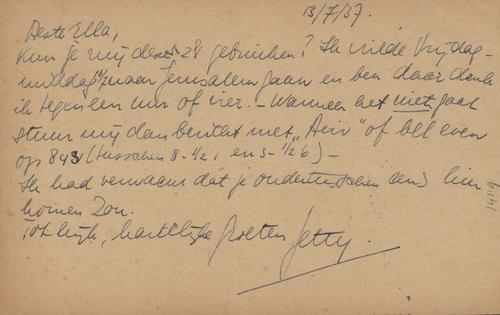 13/7/37.
Beste Ella,
Kun je mij deze 28 gebruiken? Ik wilde Vrijdag-
middag naar Jerusalem gaan en ben daar denk
ik tegen een uur of vier. - Wanneer het niet gaat
stuur mij dan bericht met "Aviv" of bel even
op 843 (tusschen 8-½1 en 3-½6) -
Ik had verwacht dat je ondertusschen eens hier
komen zou.
Tot kijk, hartelijke groeten Jetty.
1419